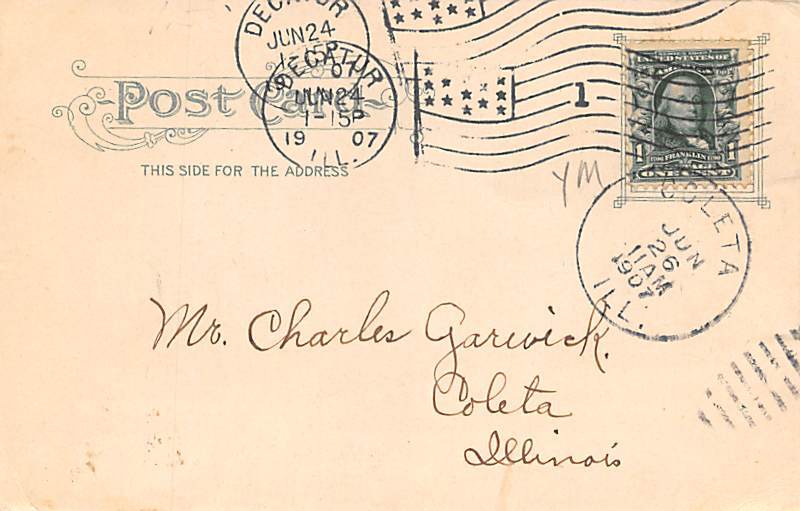 DECATUR
JUN 24
1-15P
07
DECATUR
JUN 24
1-15P
19 07
ILL.
1
Post Card
THIS SIDE FOR THE ADDRESS
UNITED STATES OF
AMERICA
1 FRANKLIN 1
ONE CENT
YM
COLETA
JUN
26
11AM
1907
ILL.
Mr. Charles Garwick.
Coleta
Illinois